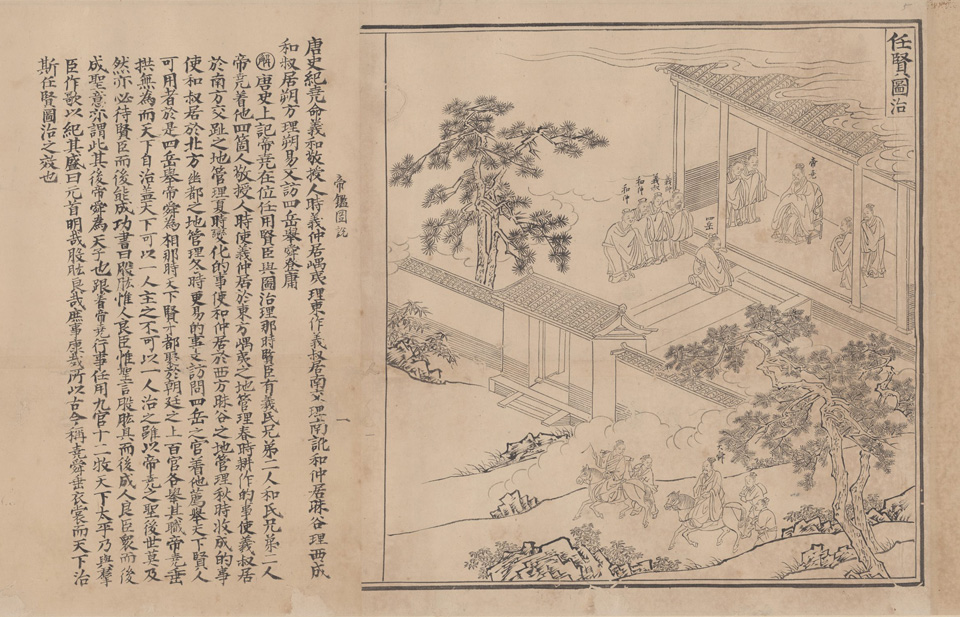 任賢圖治
帝堯
羲仲
羲叔
和仲
和叔
四岳
大舜
帝鑑圖說
一
唐史紀堯命羲和敬授人時羲仲居嵎夷理東作羲叔居南交理南訛和仲居昧谷理西成
和叔居朔方理朔易又訪四岳舉舜登庸
解唐史上記帝堯在位任用賢臣與圖治理那時賢臣有羲氏兄弟二人和氏兄弟二人
帝堯着他四箇人敬授人時使羲仲居於東方嵎夷之地管理春時耕作的事使羲叔居
於南方交趾之地管理夏時變化的事使和仲居於西方昧谷之地管理秋時收成的事
使和叔居於北方幽都之地管理冬時更易的事又訪問四岳之官着他薦舉天下賢人
可用者於是四岳舉帝舜為相那時天下賢才都聚於朝廷之上百官各舉其職帝堯垂
拱無為而天下自治蓋天下可以一人主之不可以一人治之雖以帝堯之聖後世莫及
然亦必待賢臣而後能成功書曰股肱惟人良臣惟聖言股肱具而後成人良臣衆而後
成聖意亦謂此其後帝舜為天子也跟着帝堯行事任用九官十二牧天下太平乃與羣
臣作歌以紀其盛曰元首明哉股肱良哉庶事康哉所以古今稱堯舜垂衣裳而天下治
斯任賢圖治之效也